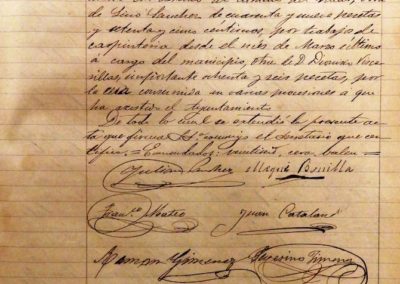 de Lino Sanchez de cuarenta y nueve pesetas
y setenta y cinco centimos, por trabajos de
carpinteria desde el mes de Marzo último
a cargo del municipio, otra de D. Dionisio
importante ochenta y seis pesetas, por
la cera consumida en varias procesiones á que
ha asistido el Ayuntamiento.
De todo lo cual se extendió la presente ac-
ta que firman Ss. conmigo el Secretario que cer-
tifico = Enmendados: cera, valen =
Julian Sanchez Roque Bonilla
Franco. Mateo Juan Cataland
Ramon Gimenez Gimeno